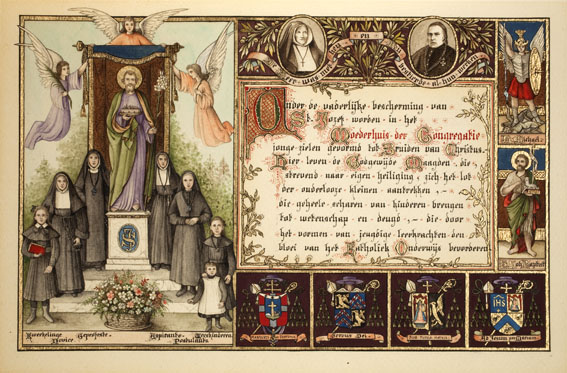 en
Onder · de · vaderlijke · bescherming · van
St. Jozef · worden · in · het
Moederhuis · der · Congregatie
jonge · zielen · gevormd · tot · Bruiden · van · Christus.
Hier · leven · de · Godgewijde · Maagden · die
strevend · naar · eigen · heiliging, · zich · het · lot
der · onderlooze · kleinen · aantrekken, · –
die · geheele · scharen · van · kinderen · brengen
tot · wetenschap · en · deugd, · – · die · door
het · vormen · van · jeugdige · leerkrachten · den
bloei · van · het · Katholiek · Onderwijs · bevorderen
St. Michael.
Kweekelinge Geprofeste. Aspirante.
Novice Postulante
Servus Dei.
IHS
Ad Jesum per Mariam